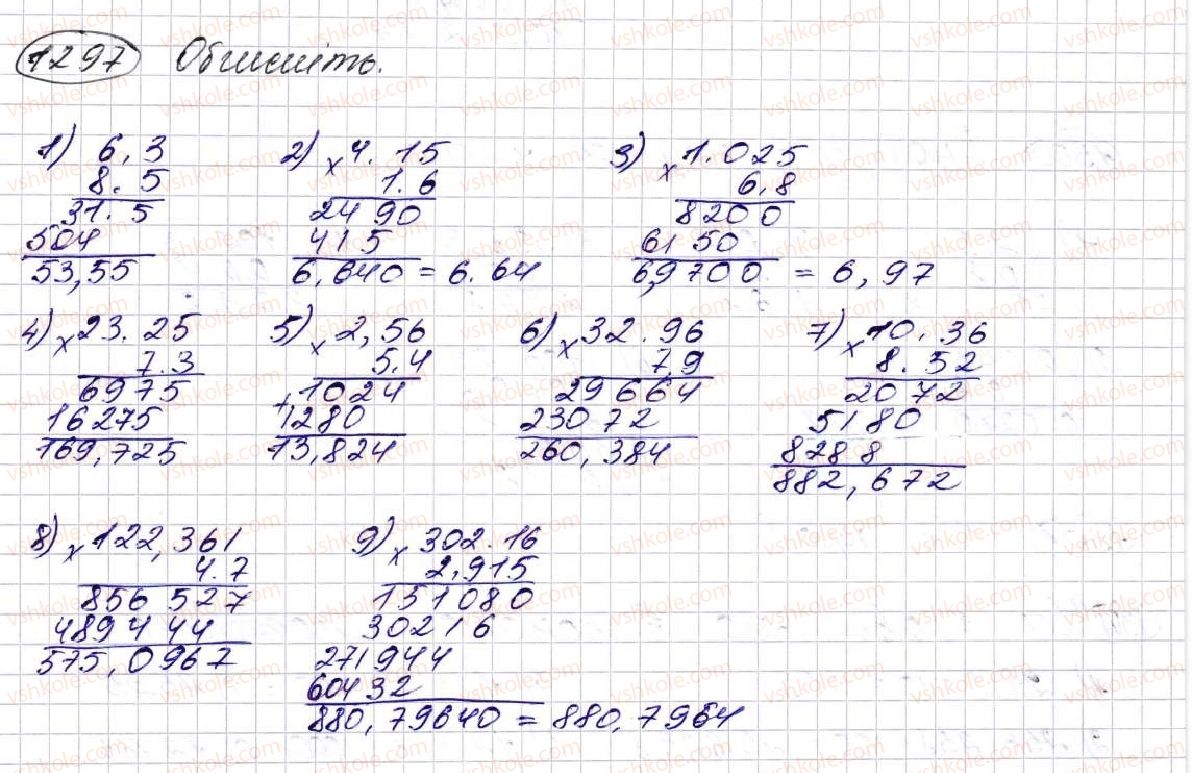 1297 Обчисліть.
1) 6,3
8.5
31.5
504
53,55
2) × 4.15
1.6
2490
415
6,640 = 6.64
3) × 1.025
6,8
8200
6150
6,9700 = 6,97
4) × 23.25
7.3
6975
16275
169,725
5) × 2,56
5,4
+ 1024
1280
13,824
6) × 32.96
7,9
29664
23072
260,384
7) × 10.36
8.52
2072
5180
8288
882,672
8) × 122,361
4.7
856527
489444
575,0967
9) × 302.16
2,915
151080
30216
271944
60432
880,79640 = 880,7964
vshkole.com